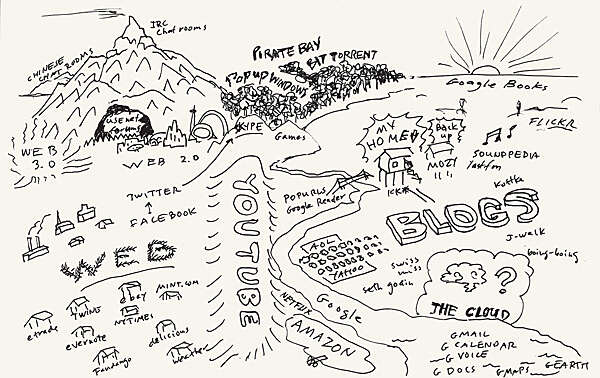 IRC
Chat rooms
CHINESE
CHAT ROOMS
PIRATE BAY
BAT TORRENT
POPUP WINDOWS
Google Books
usenet
forums
WEB
3.0
WEB 2.0
SKYPE
Games
MY
HOME
Back
up
MOZI
FLICKR
SOUNDPEDIA
lastfm
TWITTER
FACEBOOK
YOUTUBE
POPURLS
Google Reader
KK*
Kottke
BLOGS
J-walk
boing-boing
WEB
AOL
Tattoo
swiss
miss
seth godin
?
THE CLOUD
ebay
MINT.COM
etrade
TWINS
NYTIMES
evernote
delicious
Fandango
Weather
NETFLIX
Google
AMAZON
GMAIL
G CALENDAR
G VOICE
G DOCS
GMAPS
GEARTH